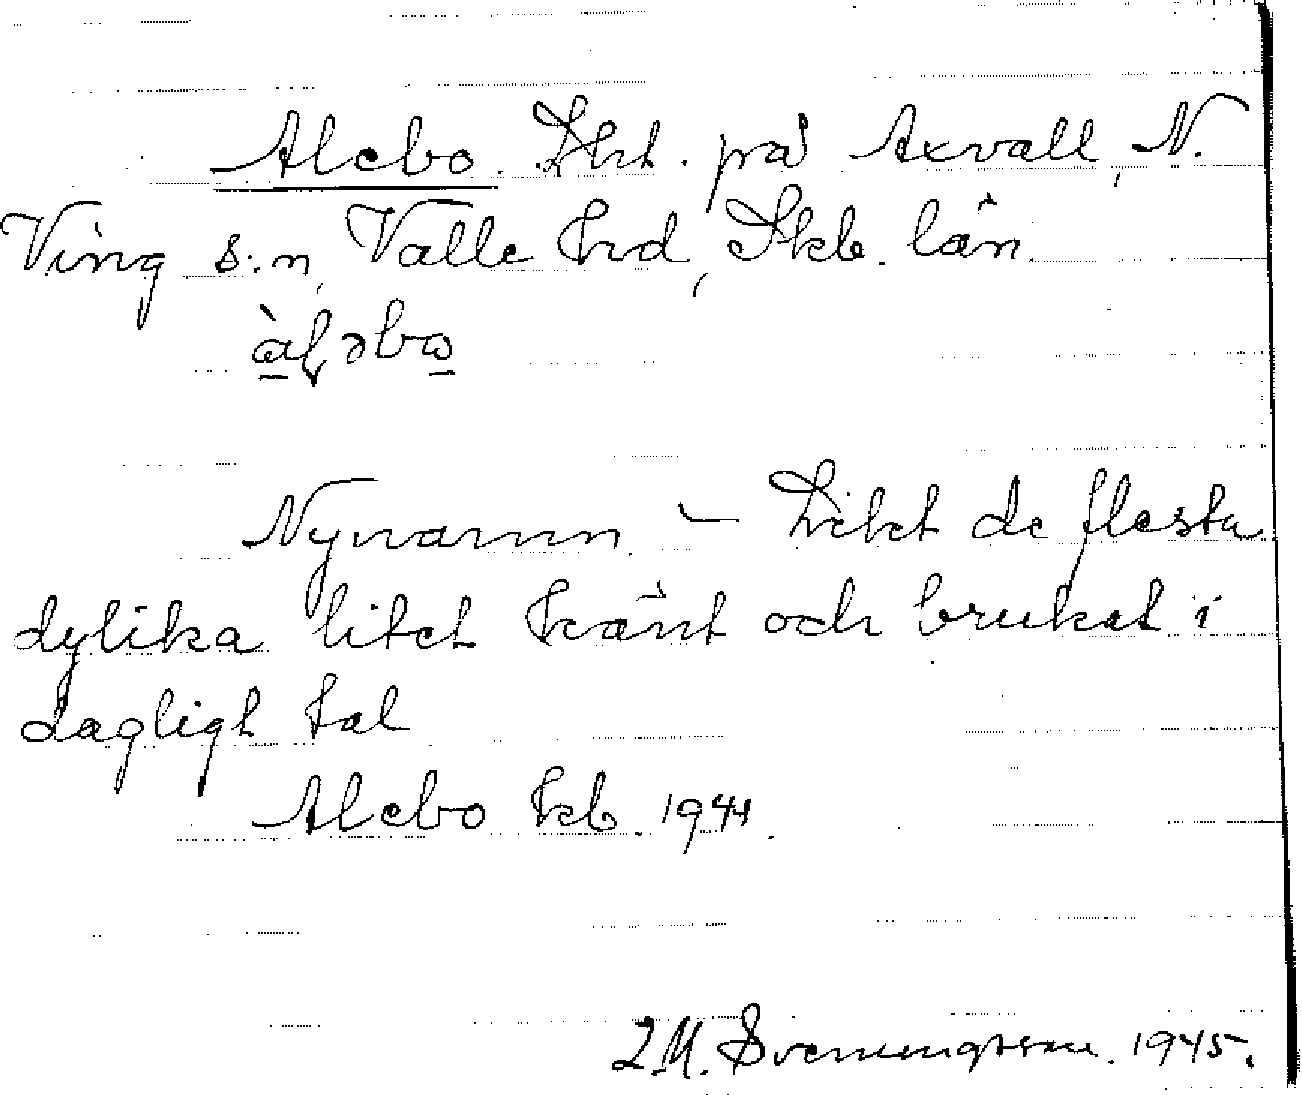 Alebo. Lht. på Axvall, N.
Ving s:n, Valle hrd, Skb. län.
àl̯əbω
Nynamn. – Likt de flesta
dylika litet känt och brukat i
dagligt tal
Alebo kb. 1941.
Svenungsson. 1945.